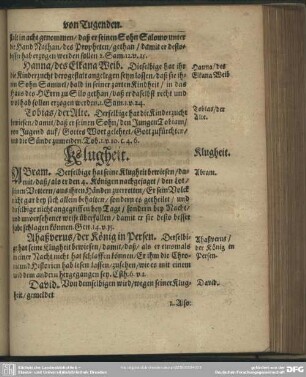 von Tugenden.
seit in acht genommen/ daß er seinen Sohn Salomo unter
die Hand Nathan/ des Propheten/ gethan/ damit er desto
besser hab erzogen werden sollen 2. Sam. 12. v.
Hanna/ des Elkana Weib. Dieselbige hat ihr
die Kinderzucht dergestalt angelegen seyn lassen/ daß sie ihren
Sohn Samuel/ bald in seiner zarten Kindheit/ in das
Hauß des HErrn zu Silo gethan/ daß er daselbst recht und
wol hab sollen erzogen werden. 1. Sam. 1. v. 24.
Hanna/ des
Elkana Weib.
Tobias/ der Alte. Derselbige hat die Kinderzucht
bewiesen/ damit/ daß er seinen Sohn/ den Jungen Tobiam/
von Jugend auff/ Gottes Wort gelehret/ Gott zufürchten/
und die Sünde zu meiden. Tob. 1. v. 10. c. 4. 6.
Tobias/ der
Alte.
Klugheit.
Klugheit.
ABram. Derselbige hat seine Klugheit bewiesen/ damit/
daß/ als er den 4. Königen nachgejagt/
Vettern/ aus ihren Händen zu erretten/ Er sein Volck
nicht gar bey sich allein behalten/ sondern es getheilet/ und
dieselbige nicht angegriffen bey Tage/ sondern bey Nacht
und unversehener weise überfallen/ damit er sie desto besser
schlagen können. Gen. 14. v. 15.
Abram.
Ahaßverus/ der König in Persen. Derselbige
hat seine Klugheit bewiesen/ damit/ daß/ als er einsmals
einer Nacht nicht hat schlaffen können/ Er ihm die Chronic
und Historien hab lesen lassen/ zusehen/ wie es mit einem
und dem andern hergegangen sey. Esth. 6. v. 1.
Ahaßverus/
der König in
Persen.
David. Von demselbigen wird/ wegen seiner Klugheit/
gemeldet
David.
1. Also: